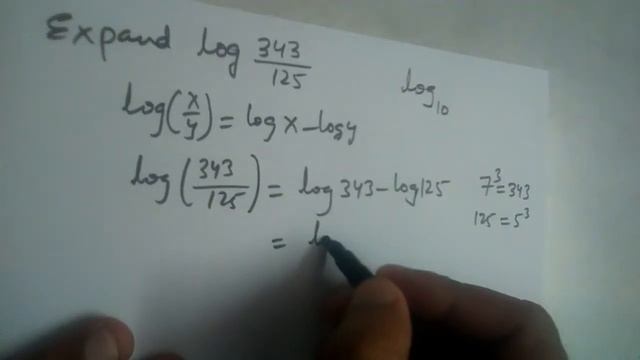 Expand log 343/125
log₁₀
log(x/y) = log x - log y
log(343/125) = log 343 - log 125
7³ = 343
125 = 5³
= lo